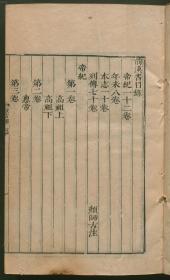 漢書目錄
帝紀一十二卷
年表八卷
本志一十卷
列傳七十卷
顏師古注
帝紀
第一卷
高祖上
高祖下
第二卷
惠帝
第三卷